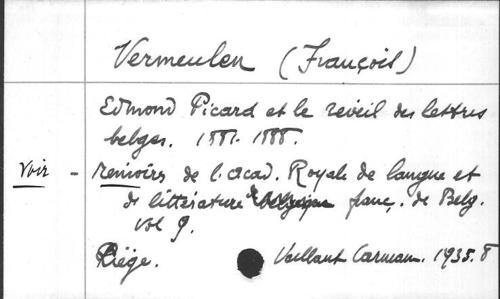 Vermeulen (François)
Edmond Picard et le reveil des lettres
belges. 1881-1888.
voir - memoires de l'acad. Royale de langue et
de littérature franç. de Belg.
vol 9.
Liége. Vaillant Carman. 1935. 8